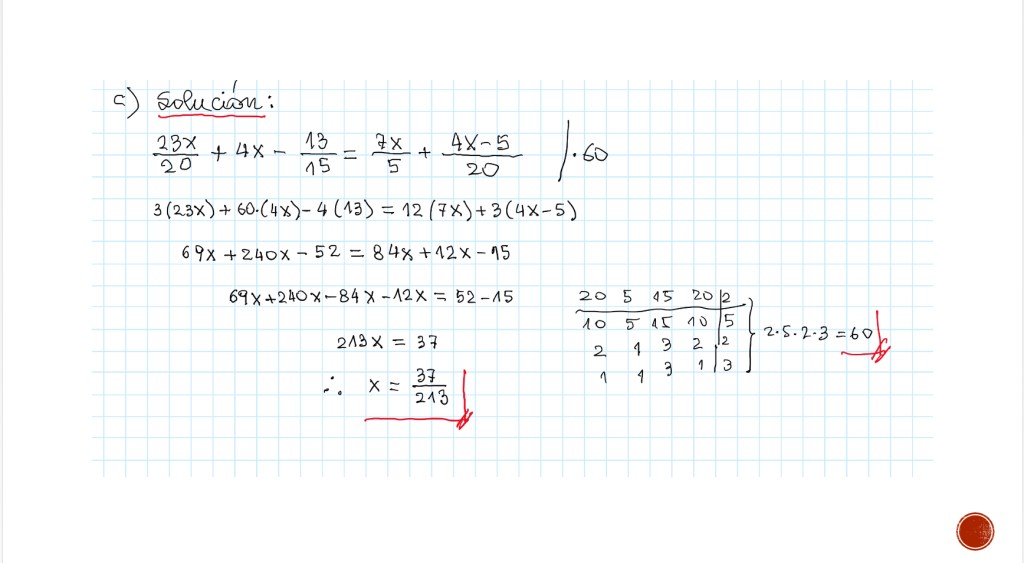 c) Solución:
23x/20 + 4x - 13/15 = 7x/5 + 4x-5/20 /·60
3(23x)+60·(4x)-4(13) = 12(7x)+3(4x-5)
69x+240x-52 = 84x+12x-15
69x+240x-84x-12x = 52-15
213x = 37
∴ x = 37/213
20 5 15 20 | 2
10 5 15 10 | 5
2 1 3 2 | 2
1 1 3 1 | 3
} 2·5·2·3 = 60